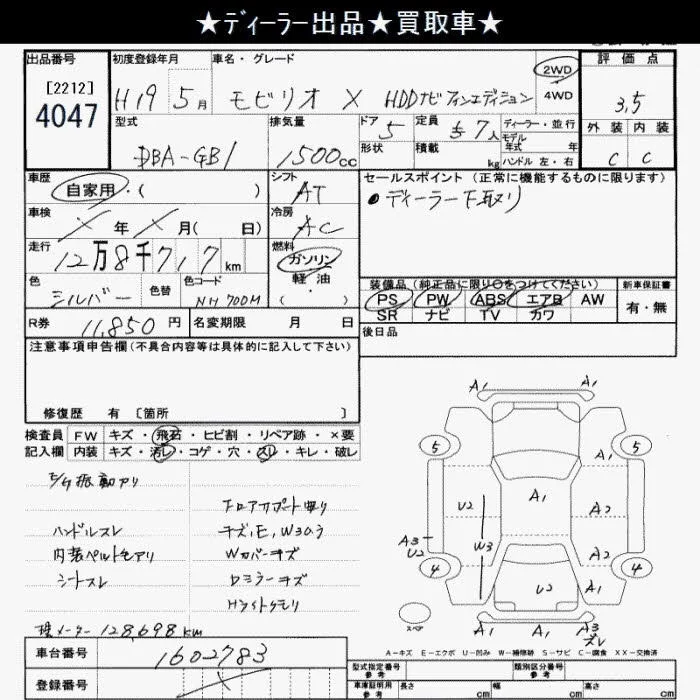 ★ディーラー出品★買取車★
出品番号 初度登録年月 車名・グレード 2WD 評価点
[2212] H19 5月 モビリオ X HDDナビ フィンエディション 4WD 3.5
4047
型式 排気量 ドア 5 定員 7人 ディーラー・並行 外装 内装
モデル 年式 年
DBA-GB1 1500cc 形状 積載 kg ハンドル 左・右 C C
車歴 シフト セールスポイント (正常に機能するものに限ります)
自家用・( ) AT ●ディーラー下取り
車検 冷房
X年X月( 日) AC
走行 燃料
12万8千717km ガソリン
軽・油
色 色替 色コード 装備品(純正品に限り○をつけてください) 新車保証書
シルバー NH700M ( ) PS PW ABS エアB AW 有・無
SR ナビ TV カワ
R券 11,850円 名変期限 月 日 後日品
注意事項申告欄(不具合内容等は具体的に記入して下さい)
修復歴 有 〔箇所 〕
検査員 FW キズ・飛石・ヒビ割・リペア跡・×要
記入欄 内装 キズ・汚レ・コゲ・穴・スレ・キレ・破レ
E/G振動アリ
ハンドルスレ キズ,E,W
内装 アリ Wカバーキズ
シートスレ Dミラーキズ
Hライトクモリ
メーター 128,698km
車台番号 1602783
登録番号 X
A1 A1
5 5
A1
U2 A2
A3 U2 W3 A2
4 4
U2
スペア A1 A1 A3 ズレ
A-キズ E-エクボ U-凹み W-補修跡 S-サビ C-腐食 XX-交換済
型式指定番号 類別区分番号
参考 参考
車庫証明用 長さ 幅 高さ
参考 cm cm cm